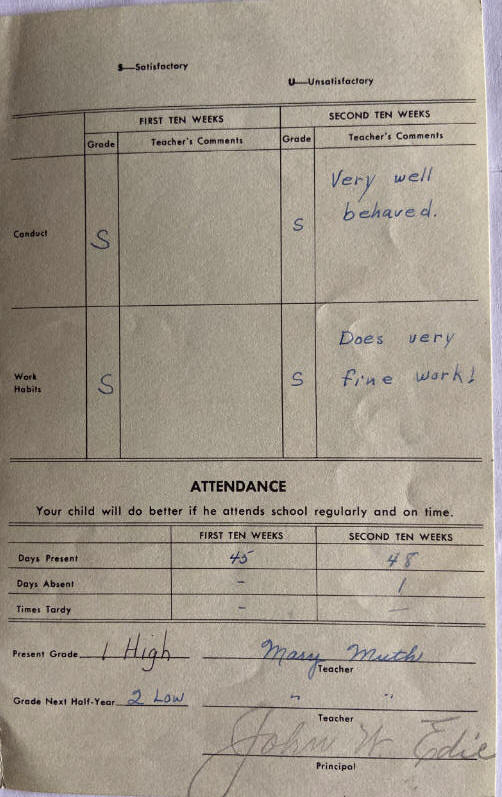 S—Satisfactory
U—Unsatisfactory
FIRST TEN WEEKS SECOND TEN WEEKS
Grade Teacher's Comments Grade Teacher's Comments
Conduct S S Very well
behaved.
Work
Habits S S Does very
fine work!
ATTENDANCE
Your child will do better if he attends school regularly and on time.
FIRST TEN WEEKS SECOND TEN WEEKS
Days Present 45 48
Days Absent - 1
Times Tardy - —
Present Grade 1 High Mary Muth
Teacher
Grade Next Half-Year 2 Low " "
Teacher
John W. Edie
Principal